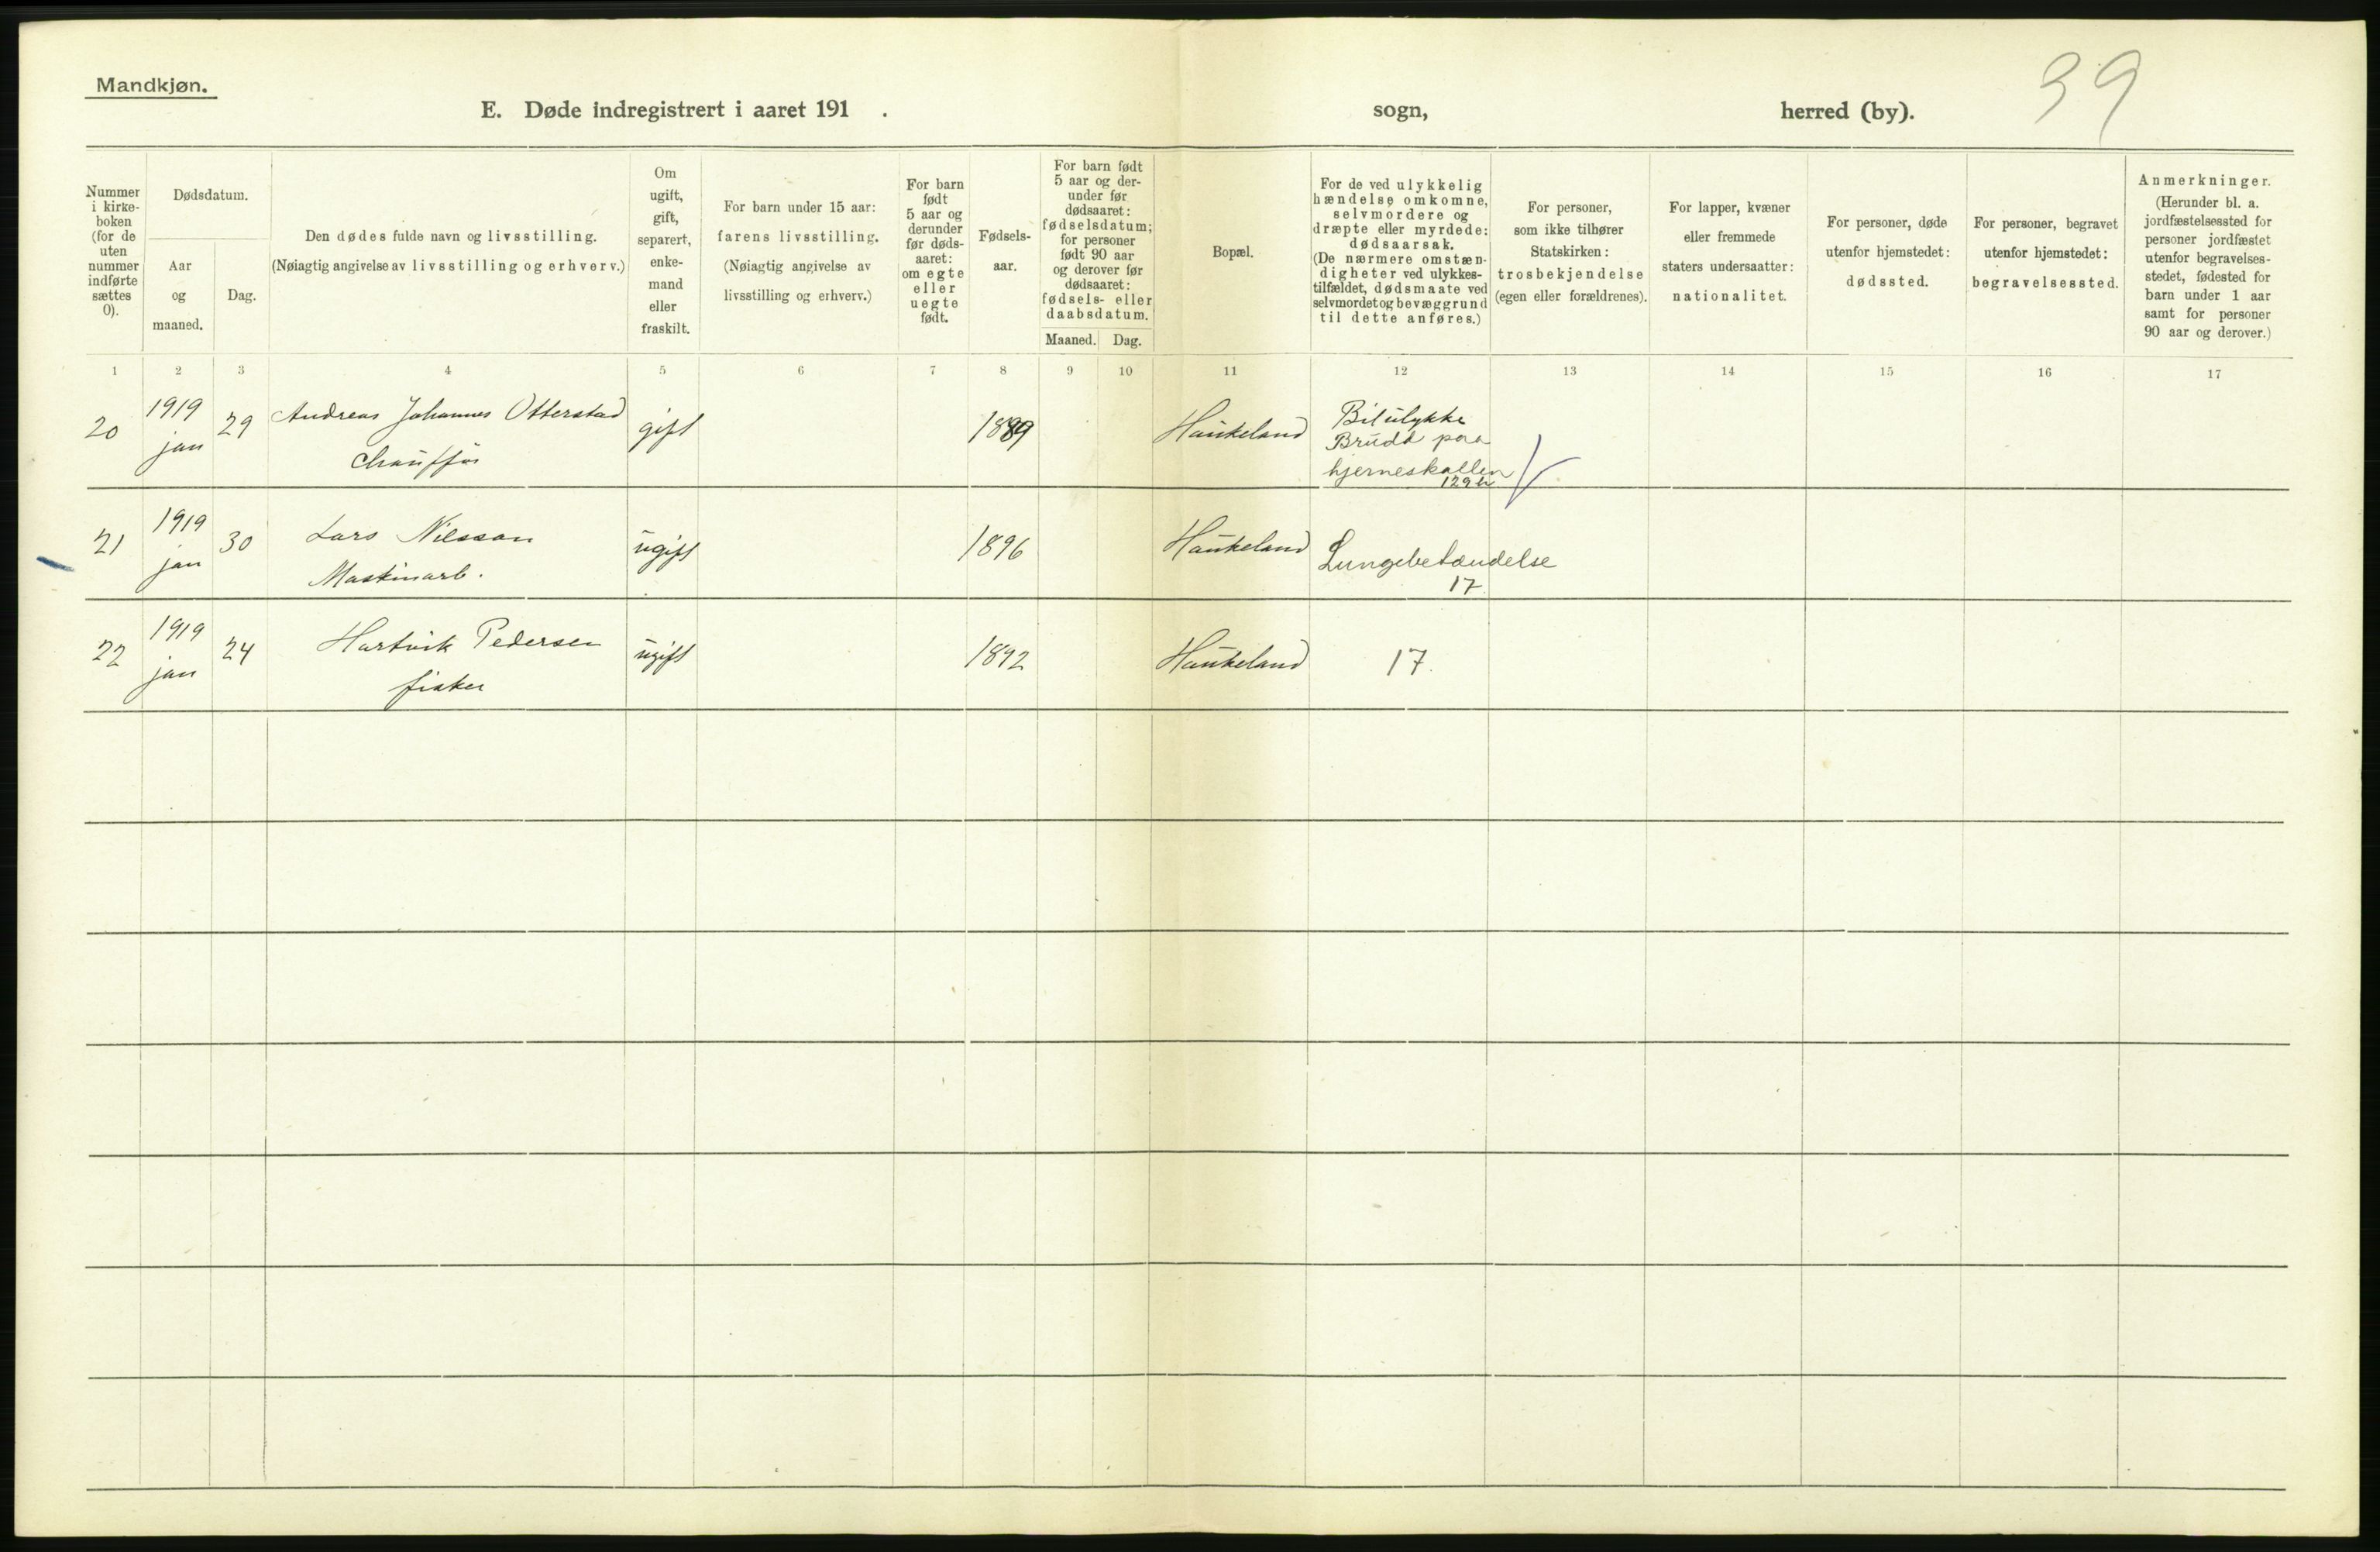 Mandkjøn.
39
E. Døde indregistrert i aaret 191 . sogn, herred (by).
Nummer
i kirke-
boken
(for de
uten
nummer
indførte
sættes
0).
Dødsdatum.
Aar
og
maaned.
Dag.
Den dødes fulde navn og livsstilling.
(Nøiagtig angivelse av livsstilling og erhverv.)
Om
ugift,
gift,
separert,
enke-
mand
eller
fraskilt.
For barn under 15 aar:
farens livsstilling.
(Nøiagtig angivelse av
livsstilling og erhverv.)
For barn
født
5 aar og
derunder
før døds-
aaret:
om egte
eller
uegte
født.
Fødsels-
aar.
For barn født
5 aar og der-
under før
dødsaaret:
fødselsdatum;
for personer
født 90 aar
og derover før
dødsaaret:
fødsels- eller
daabsdatum.
Maaned. Dag.
Bopæl.
For de ved ulykkelig
hændelse omkomne,
selvmordere og
dræpte eller myrdede:
dødsaarsak.
(De nærmere omstæn-
digheter ved ulykkes-
tilfældet, dødsmaate ved
selvmordet og bevæggrund
til dette anføres.)
For personer,
som ikke tilhører
Statskirken:
trosbekjendelse
(egen eller forældrenes).
For lapper, kvæner
eller fremmede
staters undersaatter:
nationalitet.
For personer, døde
utenfor hjemstedet:
dødssted.
For personer, begravet
utenfor hjemstedet:
begravelsessted.
Anmerkninger.
(Herunder bl. a.
jordfæstelsessted for
personer jordfæstet
utenfor begravelses-
stedet, fødested for
barn under 1 aar
samt for personer
90 aar og derover.)
1 2 3 4 5 6 7 8 9 10 11 12 13 14 15 16 17
20
1919
jan
29
Andreas Johannes Otterstad
Chauffør
gift
1889
Haukeland
Bilulykke
Brudd paa
hjerneskallen
129
21
1919
jan
30
Lars Nilsson
Maskinarb.
ugift
1896
Haukeland
Lungebetændelse
17
22
1919
jan
24
Hartvik Pedersen
fisker
ugift
1892
Haukeland
17.